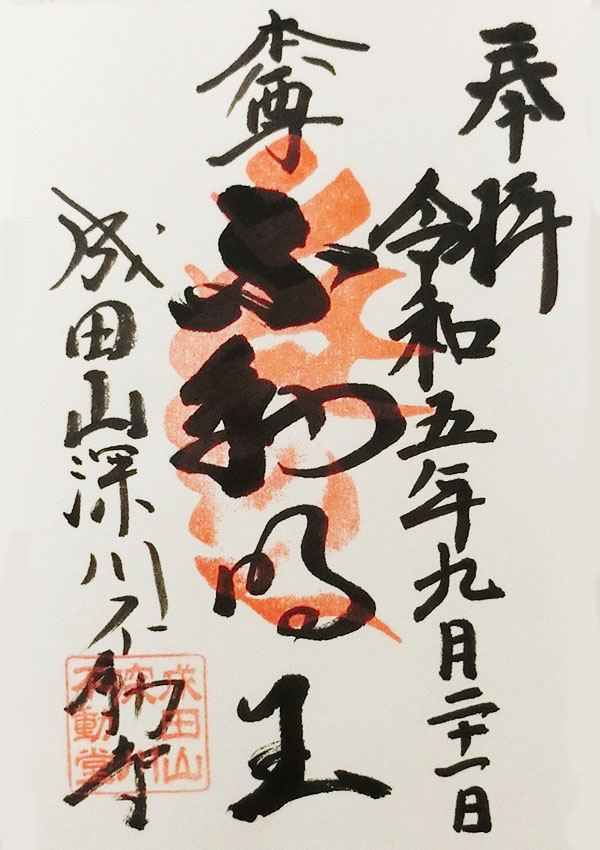 奉拝
令和五年九月二十一日
本尊
不動明王
成田山深川不動
成田山
深川
不動堂